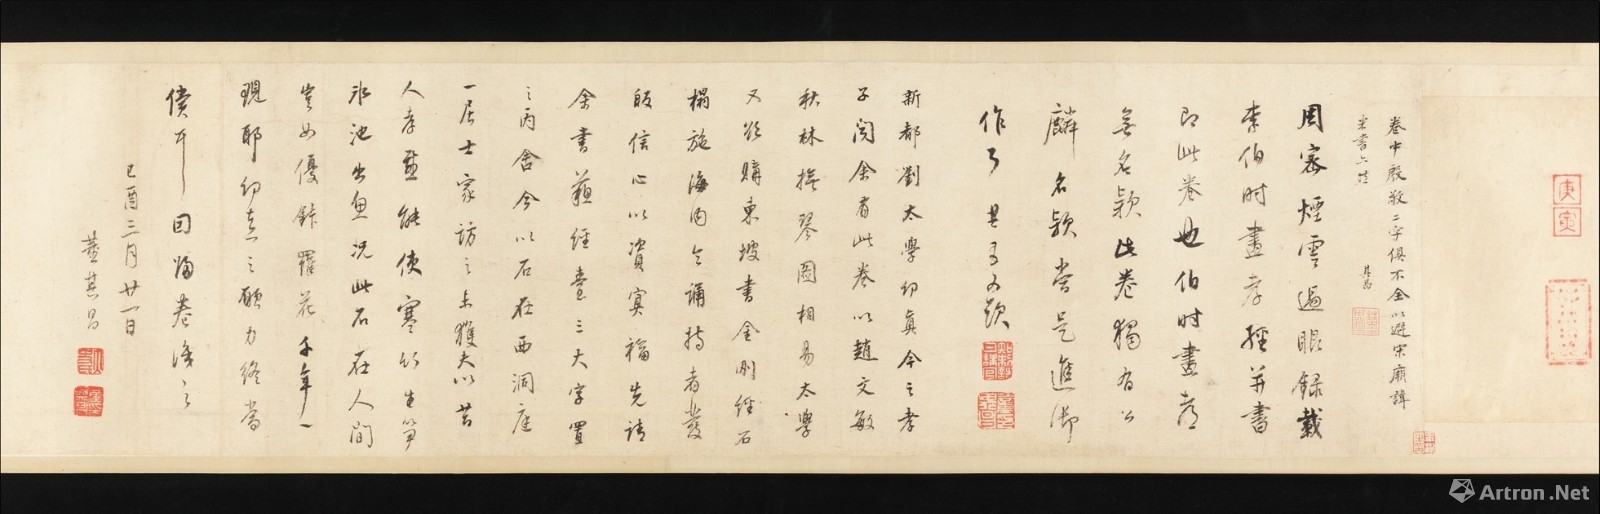 卷中殷敬二字俱不全以避宋廟諱
米書亦然
其昌
周密煙雲過眼録載
李伯時畫孝經并書
即此卷也伯時畫多
無名款此卷獨有公
麟名款當是進御
作
新都劉太學卬真今之孝
子聞余有此卷以趙文敏
秋林撫琴圖相易太學
又欲購東坡書金剛經石
榻施海內令誦持者發
皈信心以資冥福先請
余書孝經臺三大字置
之丙舍今以石在西洞庭
一居士家訪之未獲夫以昔
人孝感能使寒竹生笋
冰池出魚況此石在人間
豈如優鉢羅花千年一
現耶卬真之願力終當
償耳因歸卷識之
己酉三月廿一日
董其昌
庚寅
Artron.Net